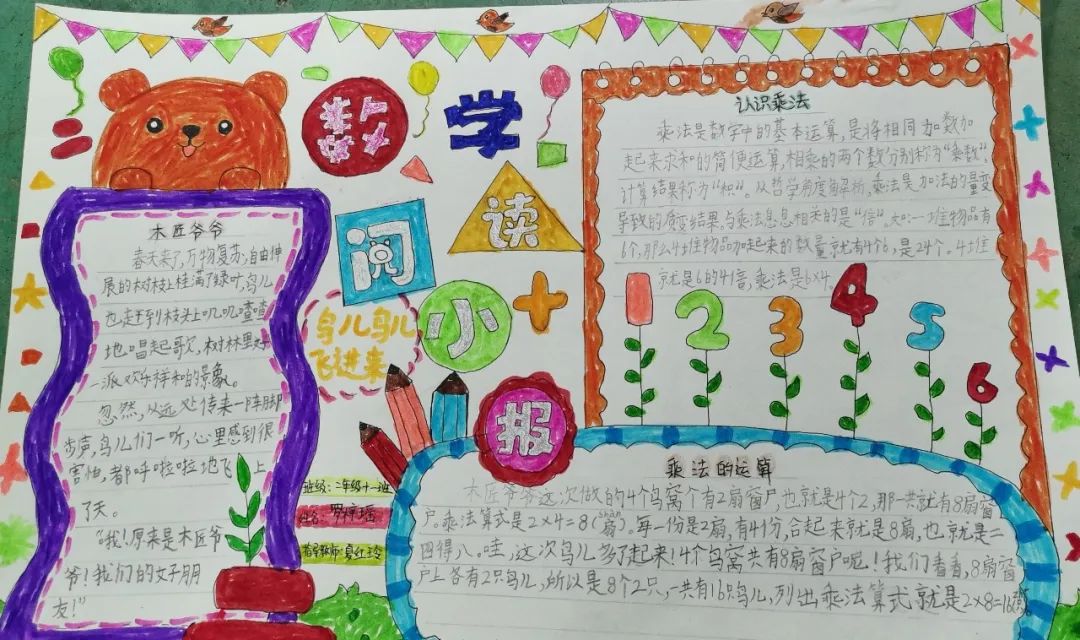 数学
阅读
小报
鸟儿鸟儿
飞进来
木匠爷爷
春天来了,万物复苏,自由伸
展的树枝上挂满了绿叶,鸟儿
也赶到枝头上叽叽喳喳
地唱起歌,树林里好
一派欢乐祥和的景象。
忽然,从远处传来一阵脚
步声,鸟儿们一听,心里感到很
害怕,都呼啦啦地飞上
了天。
“我!原来是木匠爷
爷!我们的好朋
友!”
班级:二年级十一班
姓名:
指导教师:
认识乘法
乘法是数学中的基本运算,是将相同加数加
起来求和的简便运算,相乘的两个数分别称为“乘数”,
计算结果称为“积”。从哲学角度解析,乘法是加法的量变
导致的质变结果。与乘法息息相关的是“倍”。如:一堆物品有
6个,那么4堆物品加起来的数量就有4个6,是24个。4堆
就是6的4倍,乘法是6×4。
1 2 3 4 5 6
乘法的运算
木匠爷爷这次做的4个鸟窝个有2扇窗户也就是4个2,那一共就有8扇窗
户。乘法算式是2×4=8(扇)。每一份是2扇,有4份,合起来就是8扇,也就是二
四得八。哇,这次鸟儿多了起来!4个鸟窝共有8扇窗户呢!我们看看,8扇窗
户上各有2只鸟儿,所以是8个2只,一共有16只鸟儿,列出乘法算式就是2×8=16